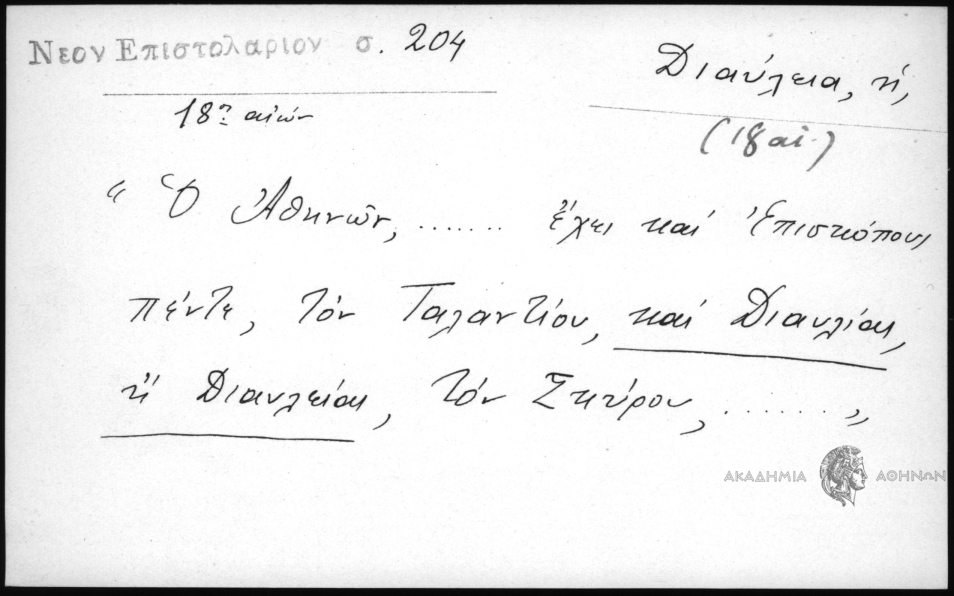 Νεον Επιστολαριον σ. 204
Διαύλεια, ἡ,
18ος αἰών
(18 αἰ.)
“ Ὁ Ἀθηνῶν, ....... ἔχει καὶ Ἐπισκόπους
πέντε, τόν Ταλαντίου, καί Διαυλίας,
ἤ Διαυλείας, τόν Σκύρου, ....... „
ΑΚΑΔΗΜΙΑ ΑΘΗΝΩΝ